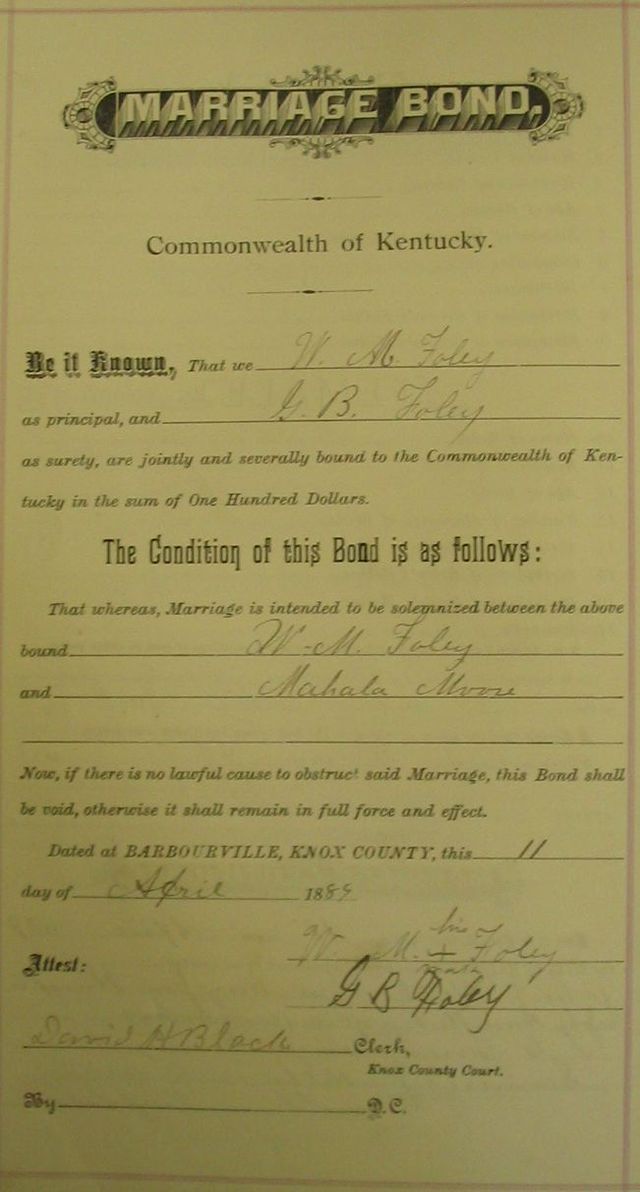 MARRIAGE BOND,
Commonwealth of Kentucky.
Be it Known, That we W. M. Foley
as principal, and G. B. Foley
as surety, are jointly and severally bound to the Commonwealth of Ken-
tucky in the sum of One Hundred Dollars.
The Condition of this Bond is as follows:
That whereas, Marriage is intended to be solemnized between the above
bound W. M. Foley
and Mahala Moore
Now, if there is no lawful cause to obstruct said Marriage, this Bond shall
be void, otherwise it shall remain in full force and effect.
Dated at BARBOURVILLE, KNOX COUNTY, this 11
day of April 1889
his
W. M. + Foley
mark
Attest:
G B Foley
David H Black Clerk,
Knox County Court.
By D.C.